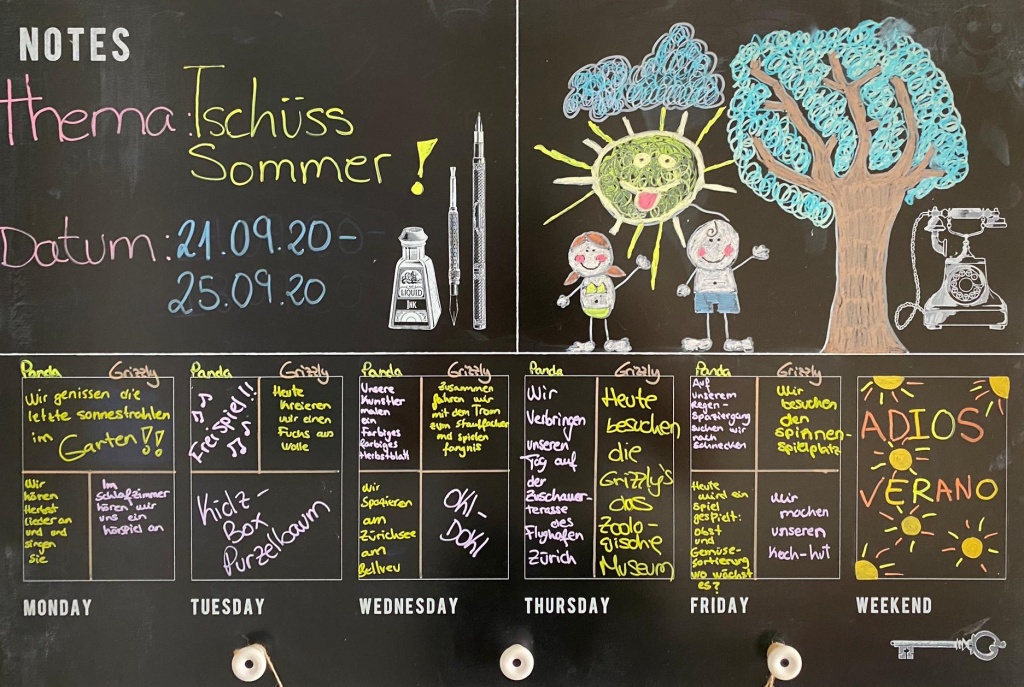 NOTES
Thema: Tschüss
Sommer!
Datum: 21.09.20-
25.09.20
LIQUID
INK
Panda Grizzly
Wir genissen die
letzte sonnestrahlen
im Garten!!
Wir
hören
Herbst
lieder an
und und
singen
sie
Im
Schlafzimmer
hören wir
uns ein
hörspiel an
MONDAY
Panda Grizzly
Frei Spiel!!
Heute
kreieren
wir einen
Fuchs aus
Wolle
Kidz-
Box
Purzelbaum
TUESDAY
Panda Grizzly
Unsere
Künstler
malen
ein
Farbiges
Farbiges
Herbstblatt
Zusammen
fahren wir
mit dem Tram
zum Stauffacher
und spielen
fangnis
Wir
Spazieren
am
Zürichsee
am
Bellveu
Okl-
Dokl
WEDNESDAY
Panda Grizzly
Wir
Verbringen
unseren
Tag auf
der
Zuschauer-
terasse
des
Flughafen
Zürich
Heute
besuchen
die
Grizzly's
das
Zoolo-
gische
Museum
THURSDAY
Panda Grizzly
Auf
unserem
Regen-
Spaziergang
suchen wir
nach
Schnecken
Wir
besuchen
den
spinnen-
spielplatz
Heute
wird ein
Spiel
gespielt:
obst
und
Gemüse-
sortierung
wo wächst
es?
Wir
machen
unseren
Koch-hut
FRIDAY
ADIOS
VERANO
WEEKEND